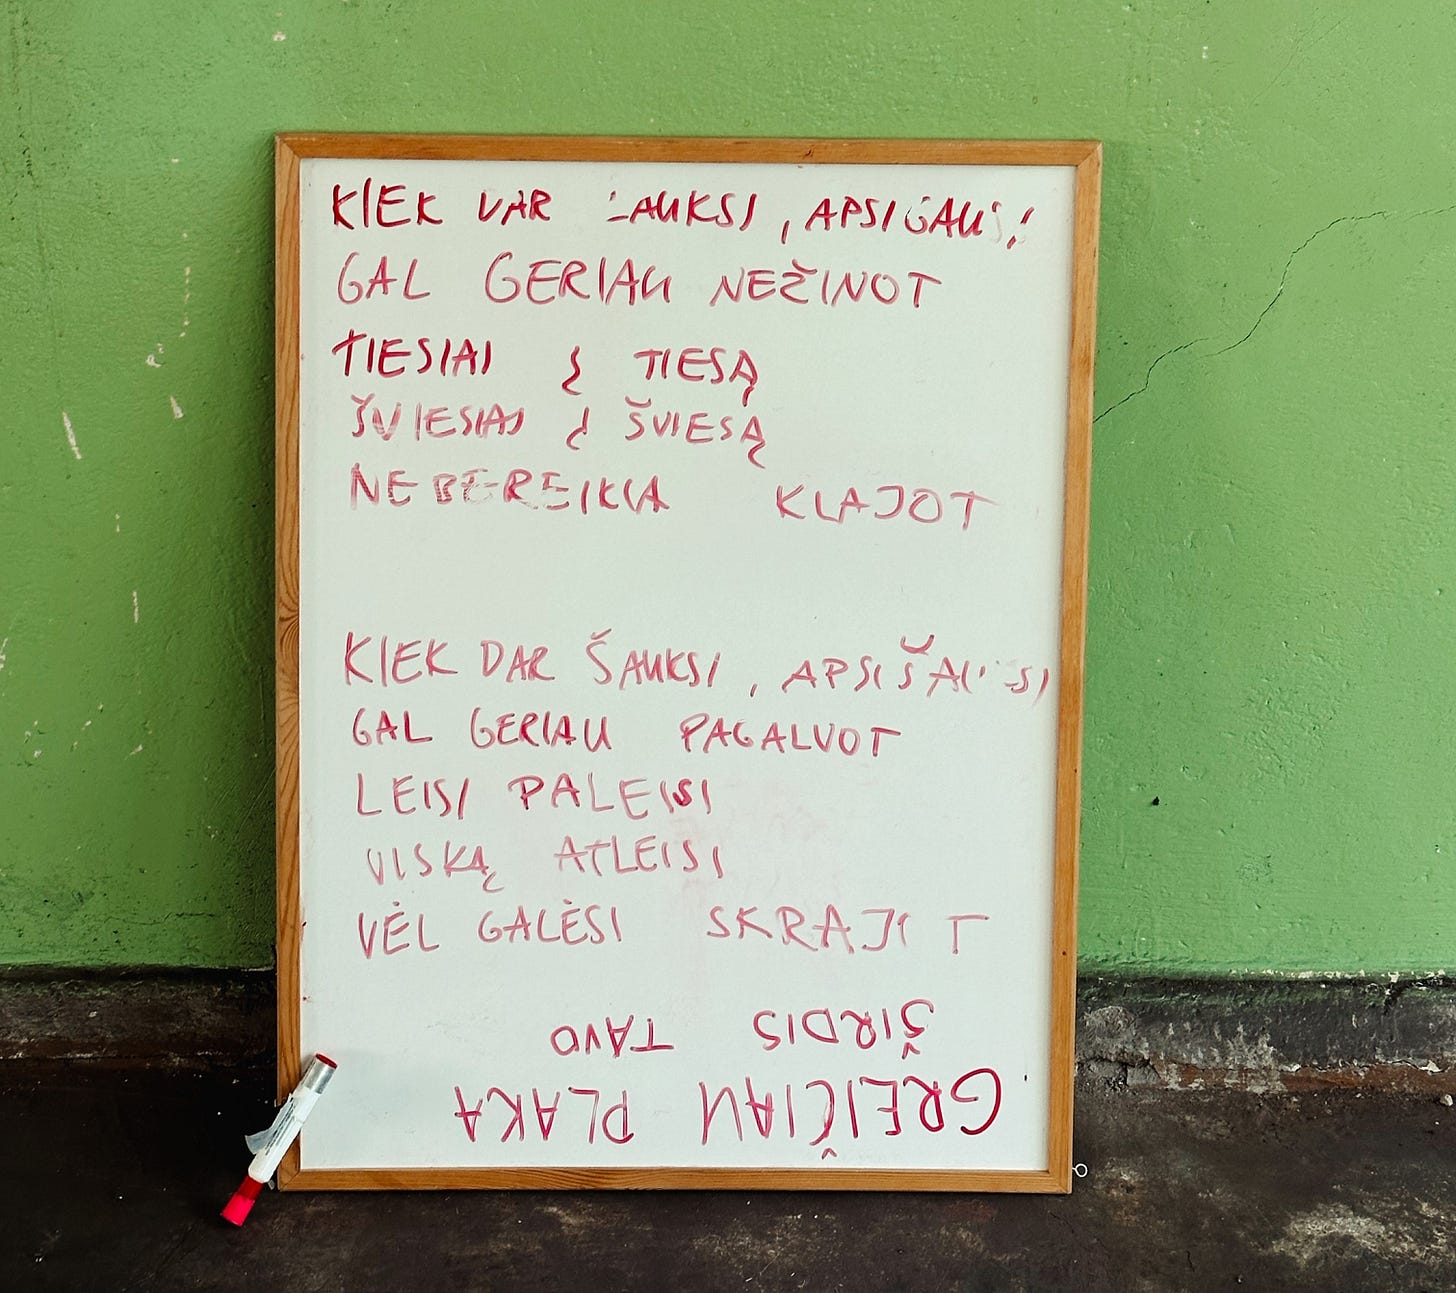 KIEK DAR LAUKSI, APSIGAUSI
GAL GERIAU NEŽINOT
TIESIAI Į TIESĄ
ŠVIESIAI Į ŠVIESĄ
NEBEREIKIA KLAJOT
KIEK DAR ŠAUKSI, APSIŠAUSI
GAL GERIAU PAGALVOT
LEISI PALEISI
VISKĄ ATLEISI
VĖL GALĖSI SKRAJIT
GREIČIAU PLAKA
ŠIRDIS TAVO